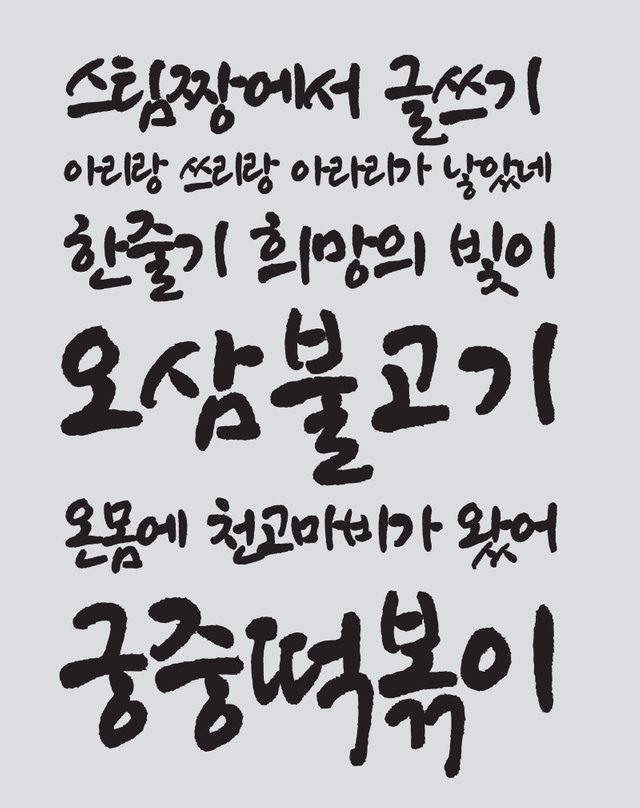 스팀짱에서 글쓰기
아리랑 쓰리랑 아라리가 낳았네
한줄기 희망의 빛이
오삼불고기
온몸에 천고마비가 왔어
궁중떡볶이